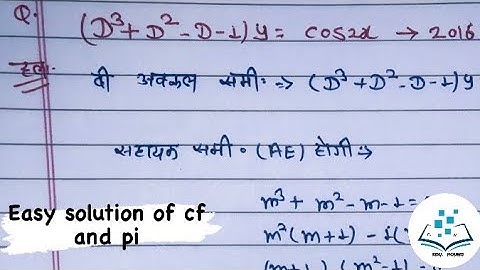 Q.
(D³+D²-D-1)y = cos2x → 2016
हलः
दी अवकल समी॰ ⇒ (D³+D²-D-1)y
सहायक समी॰ (AE) होगी ⇒
m³ + m² - m - 1 =
m²(m+1) - 1(
(m+1) (m²-1)
Easy solution of cf
and pi
EDU. POINT